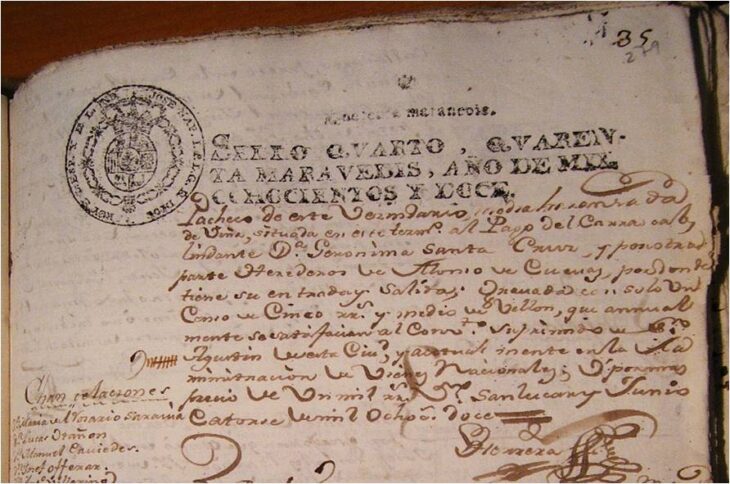 35
279
SELLO QVARTO, QVAREN-
TA MARAVEDIS, AÑO DE MIL
OCHOCIENTOS Y DOCE.
Pacheco de este Vecindario,
de Viña, situada en este term.º al Pago del Carrascal,
lindante D.ª Geronima Santa Cruz, y por otra
parte Herederos de Alonso de Cuevas, por donde
tiene su entrada y salida; gravada con solo un
Censo de Cinco rr.s y medio de Vellon, que annual
mente se satisfacian al Conv.to suprimido de S.n
Agustin de esta Ciu.d y actual mente en la Ad
ministracion de Vienes Nacionales; y por un
precio de Un mil rr.s V.n Sanlucar y Junio
Catorse de mil Ochoc.s doce
Herrera
Chan
Maria del Rosario Saravia
Lucas Otañon
Manuel Caviedes
Josef